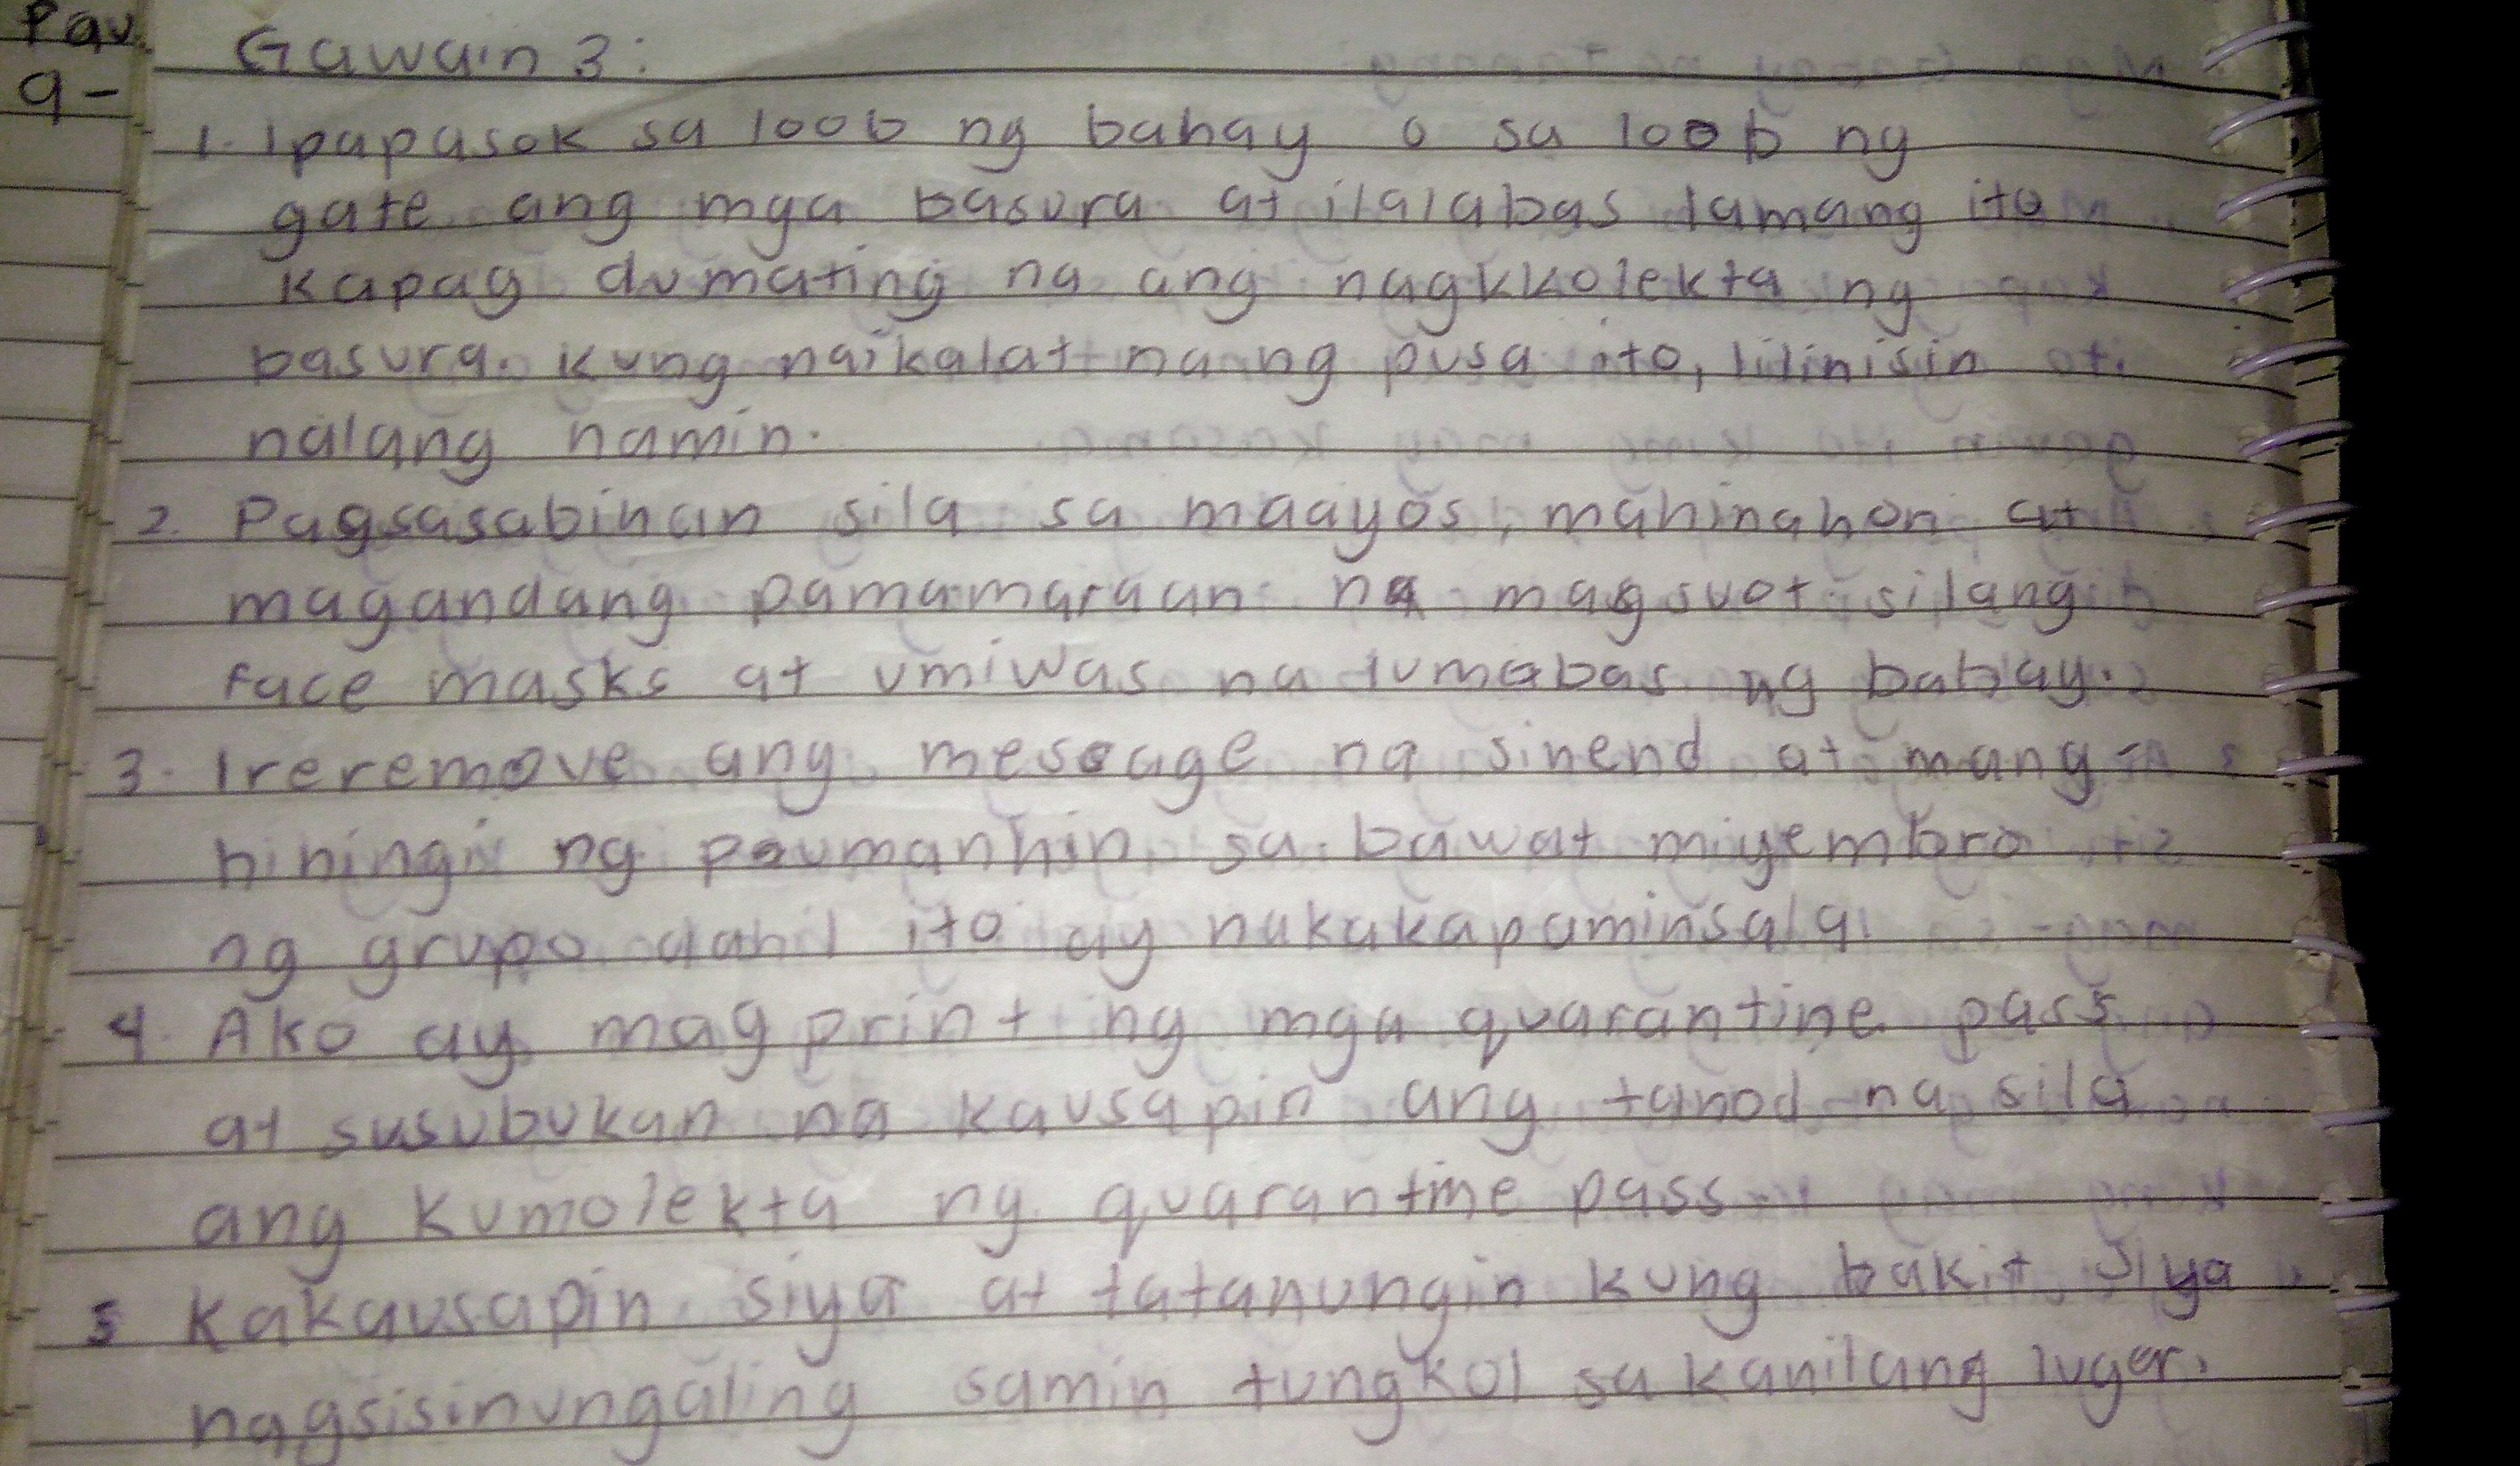 Pau.
9-
Gawain 3:
1. Ipapasok sa loob ng bahay o sa loob ng
gate ang mga basura at ilalabas lamang ito
kapag dumating na ang nagkkolekta ng
basura. Kung naikalat na ng pusa ito, lilinisin
nalang namin.
2. Pagsasabihan sila sa maayos, mahinahon at
magandang pamamaraan na magsuot silang
face masks at umiwas na lumabas ng bahay.
3. Ireremove ang message na sinend at mang-
hihingi ng paumanhin sa bawat miyembro
ng grupo dahil ito ay nakakapaminsala.
4. Ako ay mag print ng mga quarantine pass
at susubukan na kausapin ang tanod na sila
ang kumolekta ng quarantine pass.
5 Kakausapin siya at tatanungin kung bakit siya
nagsisinungaling samin tungkol sa kanilang lugar.